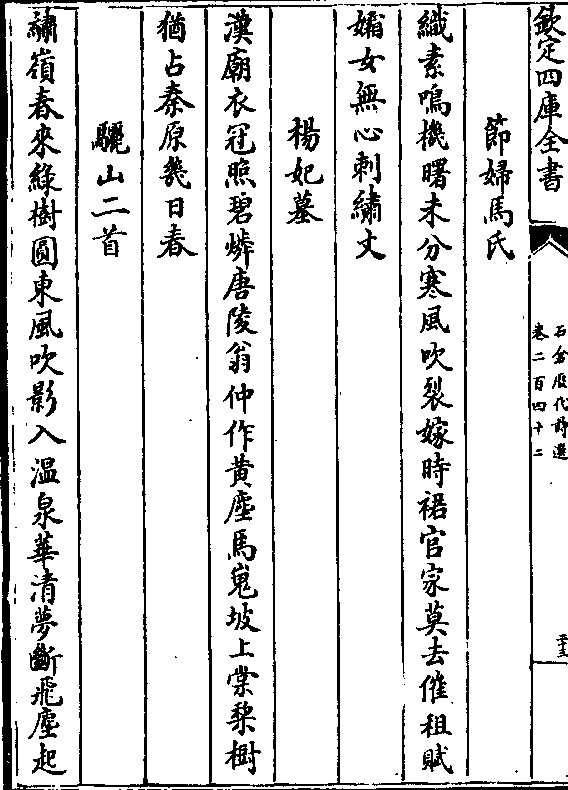 欽定四庫全書
石倉歴代詩選
卷二百四十二
節婦馬氏
織素鳴機曙未分寒風吹裂嫁時裙官家莫去催租賦
孀女無心刺繡文
楊妃墓
漢廟衣冠照碧燐唐陵翁仲作黄塵馬嵬坡上棠梨樹
猶占秦原幾日春
驪山二首
繡嶺春來綠樹圓東風吹影入温泉華清夢斷飛塵起